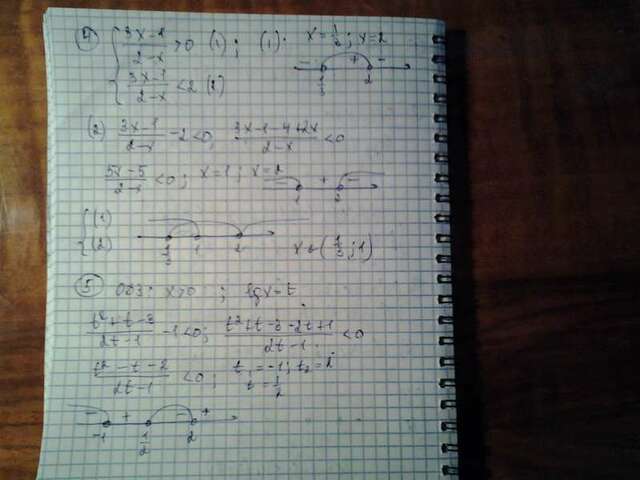 { (3x-1)/(2-x) > 0 (1) ; (1): x = 1/3 ; x = 2
(3x-1)/(2-x) < 2 (2)
- + -
1/3 2
(2) (3x-1)/(2-x) - 2 < 0; (3x-1-4+2x)/(2-x) < 0
(5x-5)/(2-x) < 0 ; x = 1 ; x = 2
- + -
1 2
{ (1)
(2)
1/3 1 2
x ∈ (1/3 ; 1)
(5) ОДЗ: x>0 ; lg x = t.
(t²+t-3)/(2t-1) - 1 < 0; (t²+t-3-2t+1)/(2t-1) < 0
(t²-t-2)/(2t-1) < 0 ; t₁ = -1; t₂ = 2
t = 1/2
- + - +
-1 1/2 2